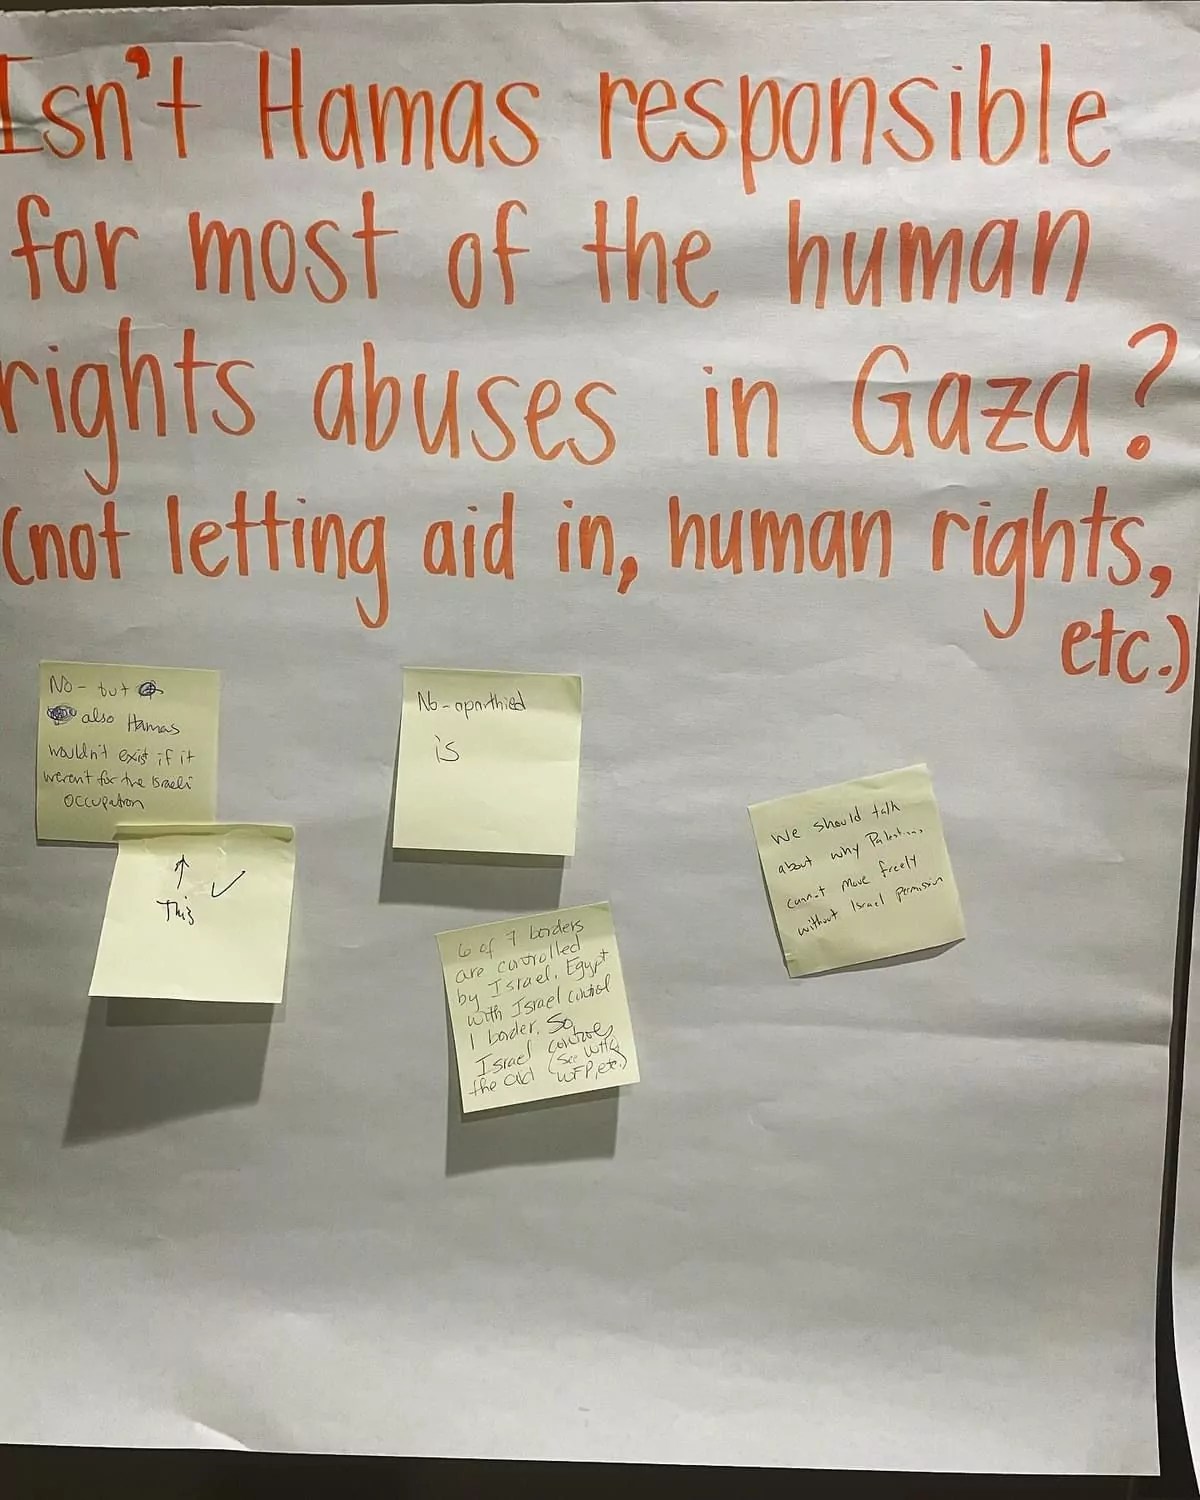 Isn't Hamas responsible
for most of the human
rights abuses in Gaza?
(not letting aid in, human rights,
etc.)
No - but
also Hamas
wouldn't exist if it
weren't for the Israeli
occupation
↑ ✓
This
No - aparthied
is
6 of 7 borders
are controlled
by Israel. Egypt
with Israel control
1 border. So
Israel controls
the aid (see WHO,
WFP, etc.)
We should talk
about why Palestinians
cannot move freely
without Israel permission